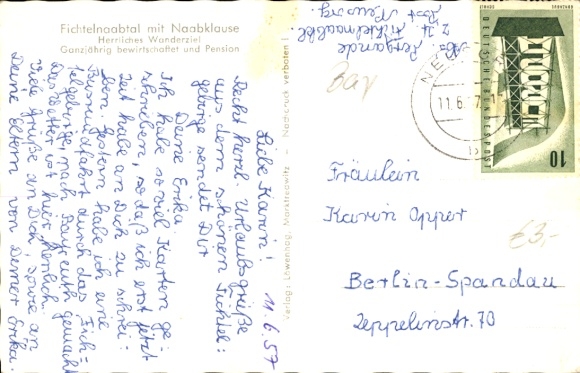 Fichtelnaabtal mit Naabklause
Herrliches Wanderziel
Ganzjährig bewirtschaftet und Pension
11.6.57
Liebe Karin!
Recht herzl. Urlaubsgrüße
aus dem schönen Fichtel-
gebirge sendet Dir
Deine Erika.
Ich habe so viel Karten ge-
schrieben, so daß ich erst jetzt
Zeit habe an Dich zu schrei-
ben. Gestern habe ich eine
Busrundfahrt durch das Fich-
telgebirge, nach Bayreuth gemacht
Das Wetter ist hier herrlich.
Viele Grüße an Dich, sowie an
Deine Eltern von Deiner Erika.
Verlag: Löwenhag, Marktredwitz - Nachdruck verboten!
Abs.
z. Zt. Fichtelnaabtal
Post
Bay
NEU
11.6.57
DEUTSCHE BUNDESPOST
10
Fräulein
Karin Opper
€3,-
Berlin-Spandau
Zeppelinstr. 70